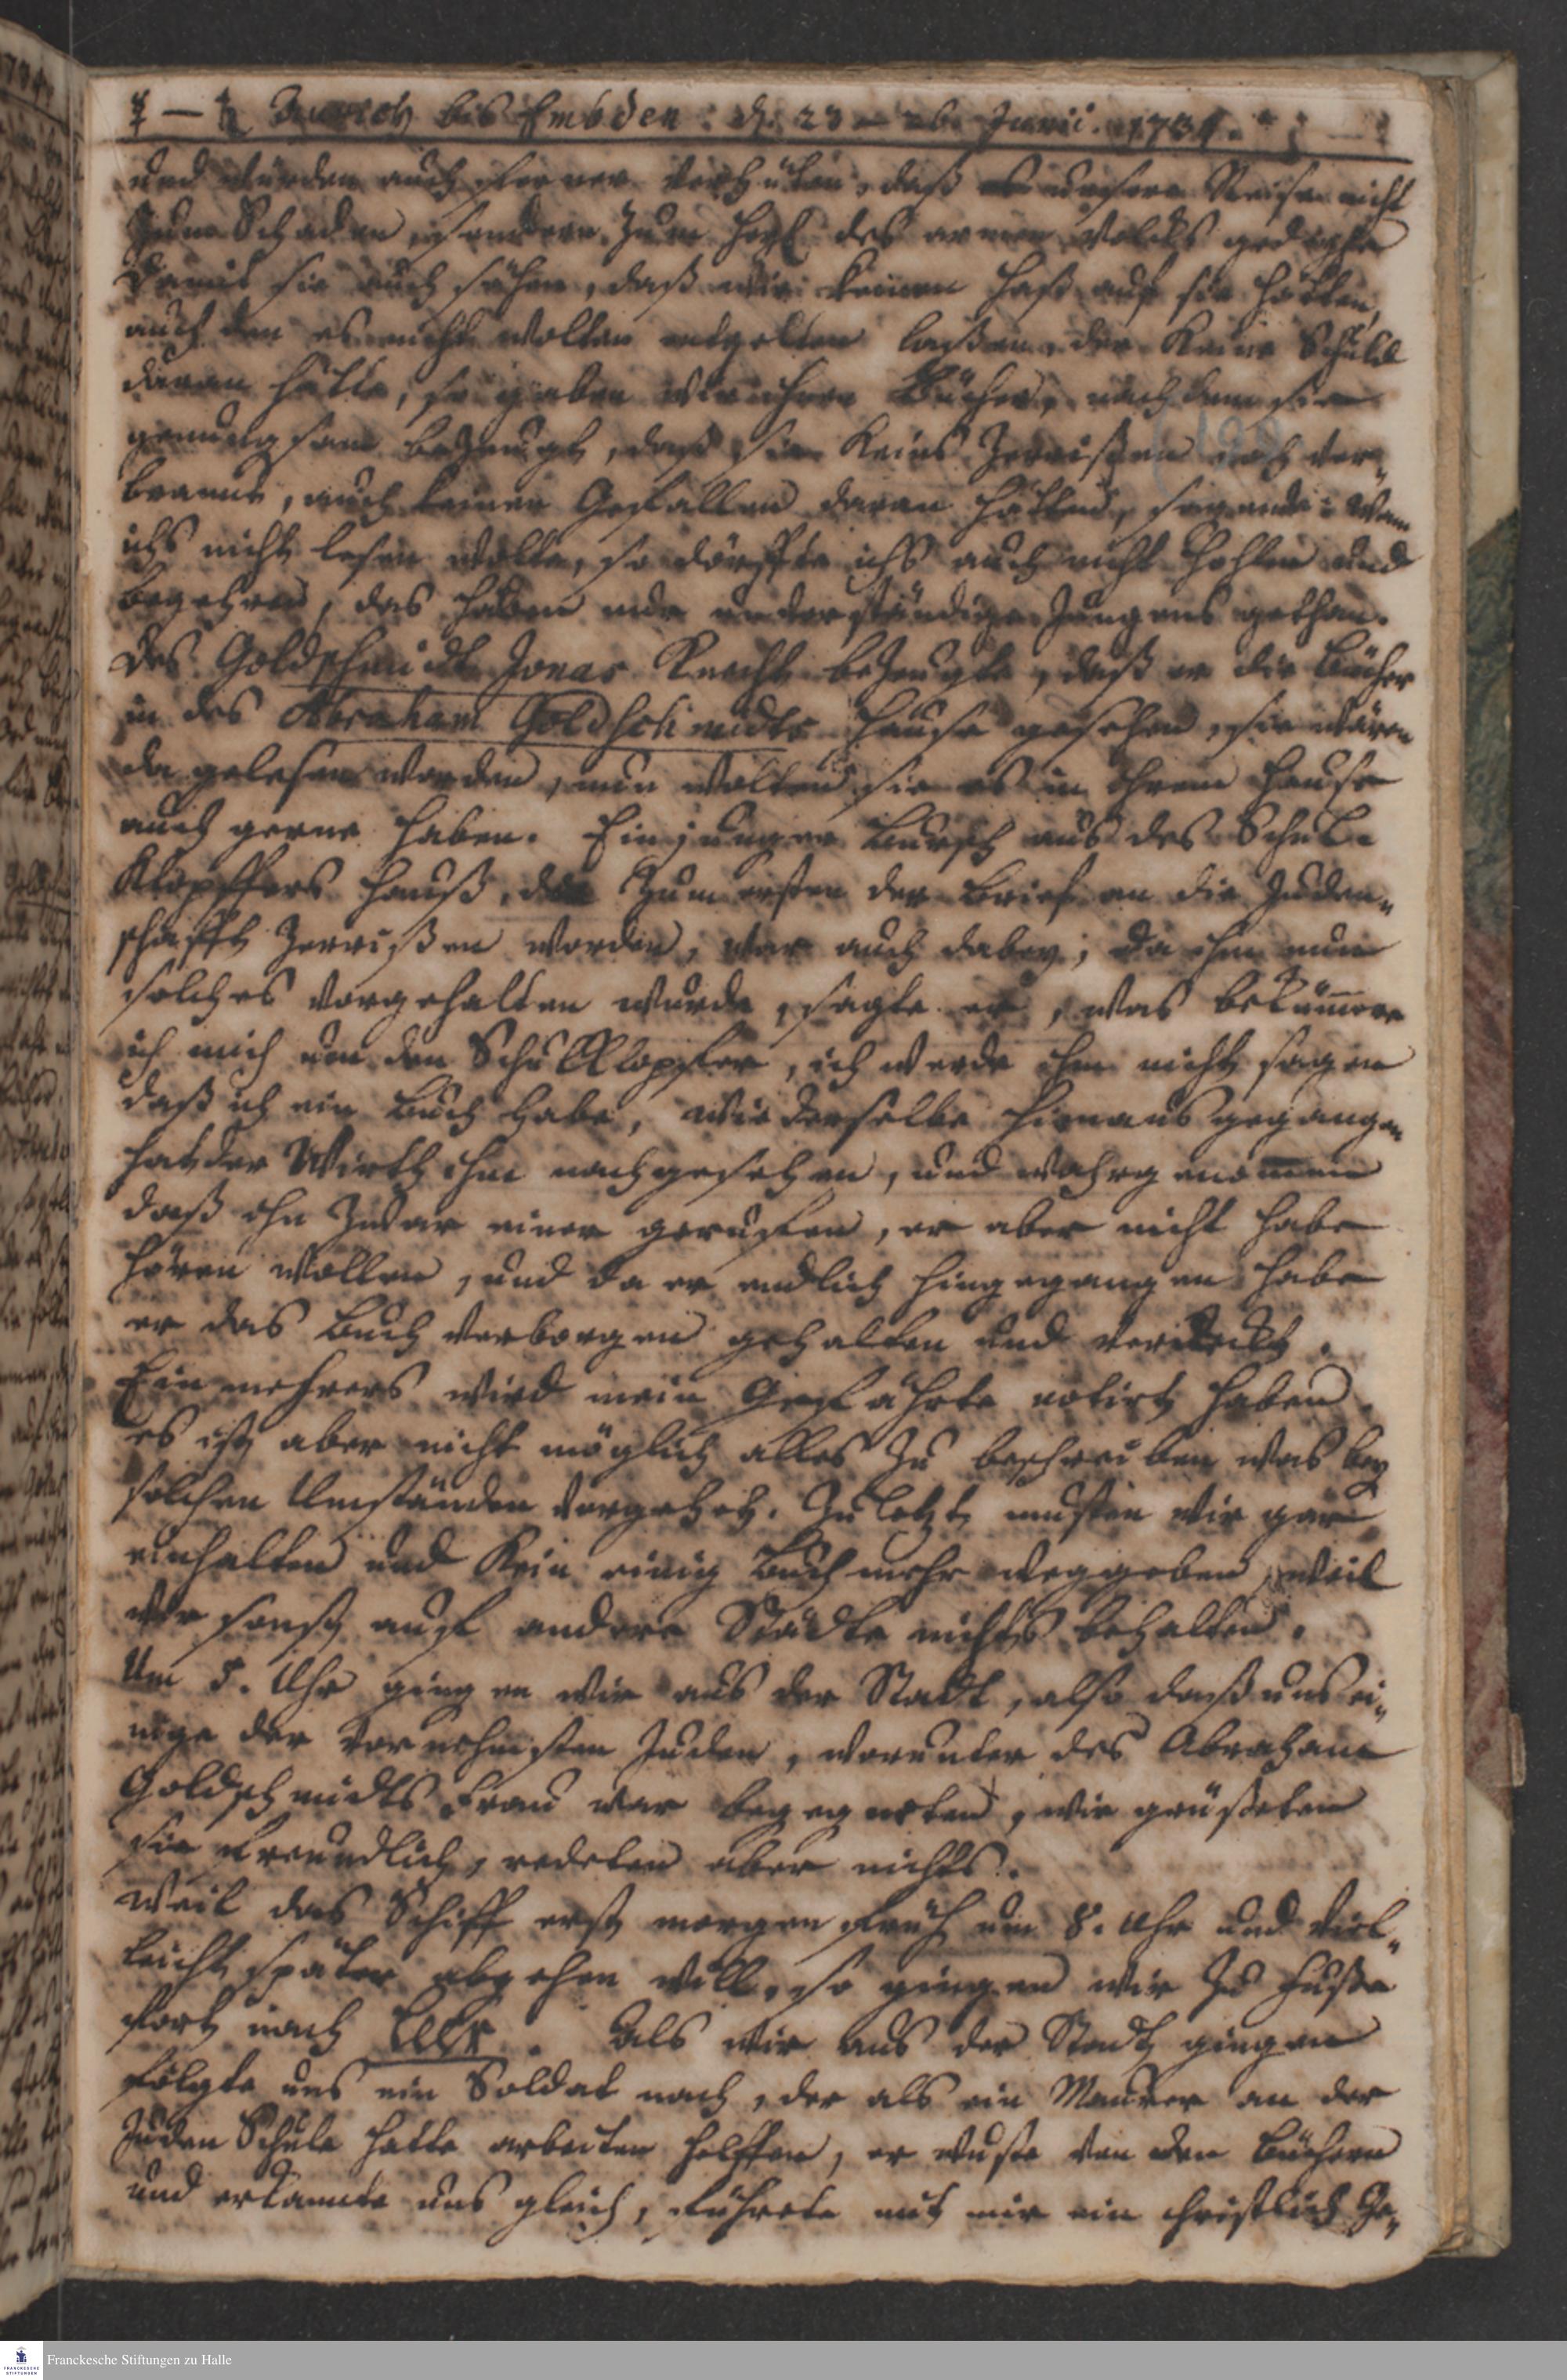 ☿ – ♄ Aurich bis Embden: d. 23 – 26. Junii. 1734.
und würden auch ferner verhüten, daß unsere Reise nicht
zum Schaden, sondern zum Heyl des armen Volcks gedeyhe
Damit sie auch sähen, daß wir keinen Haß auf sie hätten,
auch den es nicht wolten entgelten laßen, der keine Schuld
daran hätte, so gaben wir ihnen Bücher, nachdem sie
genungsam bezeugt, daß sie keins zerrißen noch ver-
brannt, auch keinen Gefallen daran hätten, sagende: Wenn
ichs nicht lesen wolte, so dörffte ichs auch nicht hohlen und
begehren, das haben nur unverständige Jungens gethan.
Des Goldschmidt Jonas Knecht bezeugte, daß er die Bücher
in des Abraham Goldschmidts Hause gesehen, sie wären
da gelesen worden, nun wolten sie es in ihrem Hause
auch gerne haben. Ein junger Bursch aus des Schul-
Klopffers Hauß, da zum ersten der Brief an die Juden-
schafft zerrißen worden, war auch dabey; da ihm nun
solches vorgehalten wurde, sagte er, was bekümere
ich mich um den Schulklopfer, ich werde ihm nicht sagen
daß ich ein Buch habe, wie derselbe hinausgegangen
hat der Wirth ihm nachgesehen, und wahrgenomen
daß ihn zwar einer geruffen, er aber nicht habe
hören wollen, und da er endlich hingegangen habe
er das Buch verborgen gehalten und versteckt.
Ein mehrers wird mein Gefährte notirt haben.
es ist aber nicht möglich alles zu beschreiben was bey
solchen Umständen vorgehet. Zuletzt musten wir gar
einhalten und kein einig Buch mehr weggeben, weil
wir sonst auf andere Städte nichts behalten.
Um 5. Uhr gingen wir aus der Stadt, also daß uns ei-
nige der vornehmsten Juden, worunter des Abraham
Goldschmidts Frau war begegneten, wir grüßeten
sie freundlich, redeten aber nichts.
Weil das Schiff erst morgen früh um 8. Uhr und viel-
leicht später abgehen will, so gingen wir zu Fuße
fort nach . Als wir aus der Stadt gingen
folgte uns ein Soldat nach, der als ein Maurer an der
Juden Schule hatte arbeiten helffen, er wuste von den Büchern
und erkannte uns gleich, führete mit mir ein christlich Ge-
Franckesche Stiftungen zu Halle